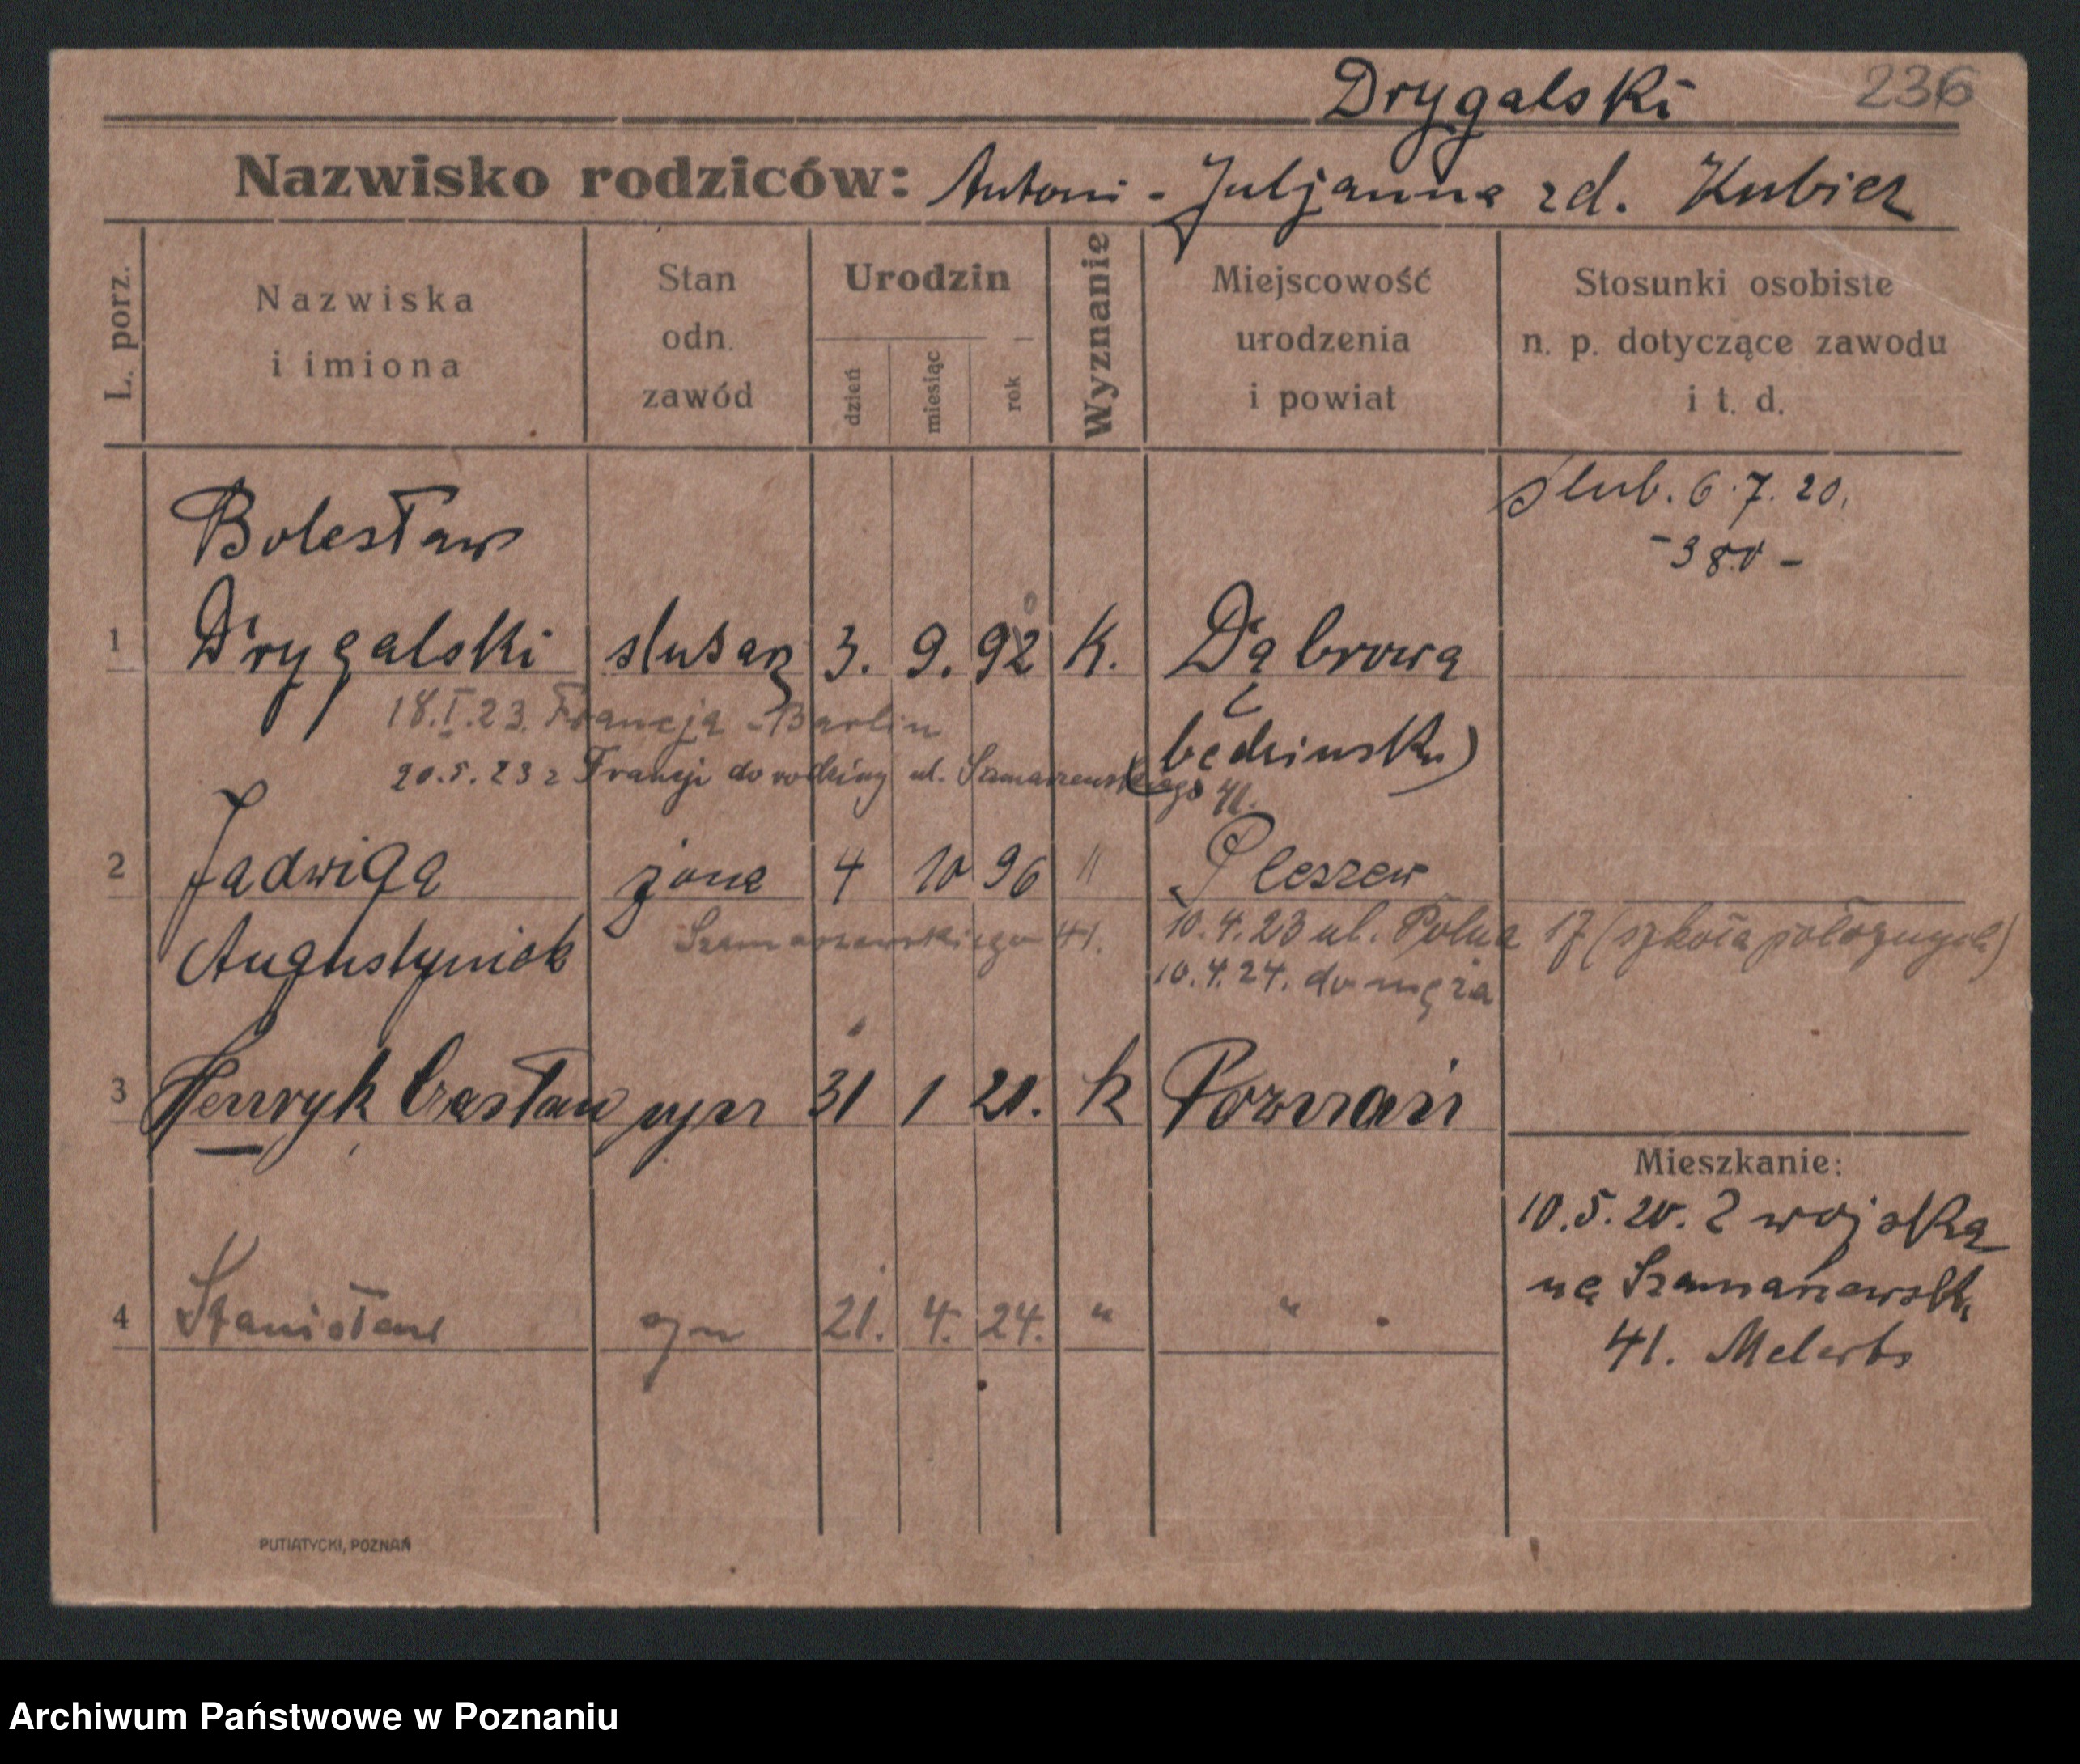 Drygalski 236
Nazwisko rodziców: Antoni - Juljanna zd. Kubicz
L. porz.
Nazwiska i imiona
Stan odn. zawód
Urodzin
dzień miesiąc rok
Wyznanie
Miejscowość urodzenia i powiat
Stosunki osobiste n. p. dotyczące zawodu i t. d.
Slub. 6.7.20.
- 380 -
Bolesław
1 Drygalski slusarz 3. 9. 92 K. Dąbrowa
18.I.23. Francja - Berlin
(będzinsk)
20.5.23 z Francji do rodziny ul. Szamarzewskiego 41.
2 Jadwiga żona 4 10 96 " Pleszew
Augustyniak
Szamarzewskiego 41.
10.4.23 ul. Polna 17 (szkoła położnych)
10.4.24. do męża
3 Henryk Czesław syn 31 1 21. k Poznań
Mieszkanie:
10.5.20. z wojska
na Szamarzewsk.
41.
4 Stanisław syn 21. 4. 24. " "
PUTIATYCKI, POZNAŃ
Archiwum Państwowe w Poznaniu